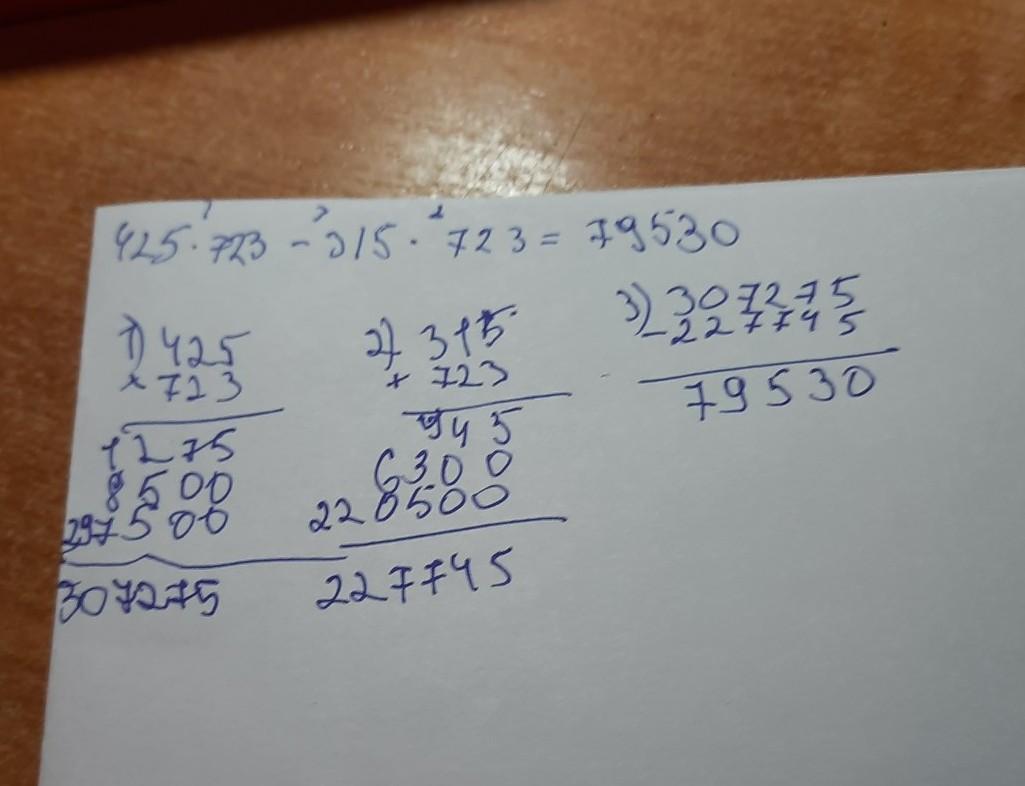 425 · 723 - 315 · 723 = 79530
1) 425
× 723
1275
8500
297500
307275
2) 315
× 723
945
6300
220500
227745
3) 307275
- 227745
79530